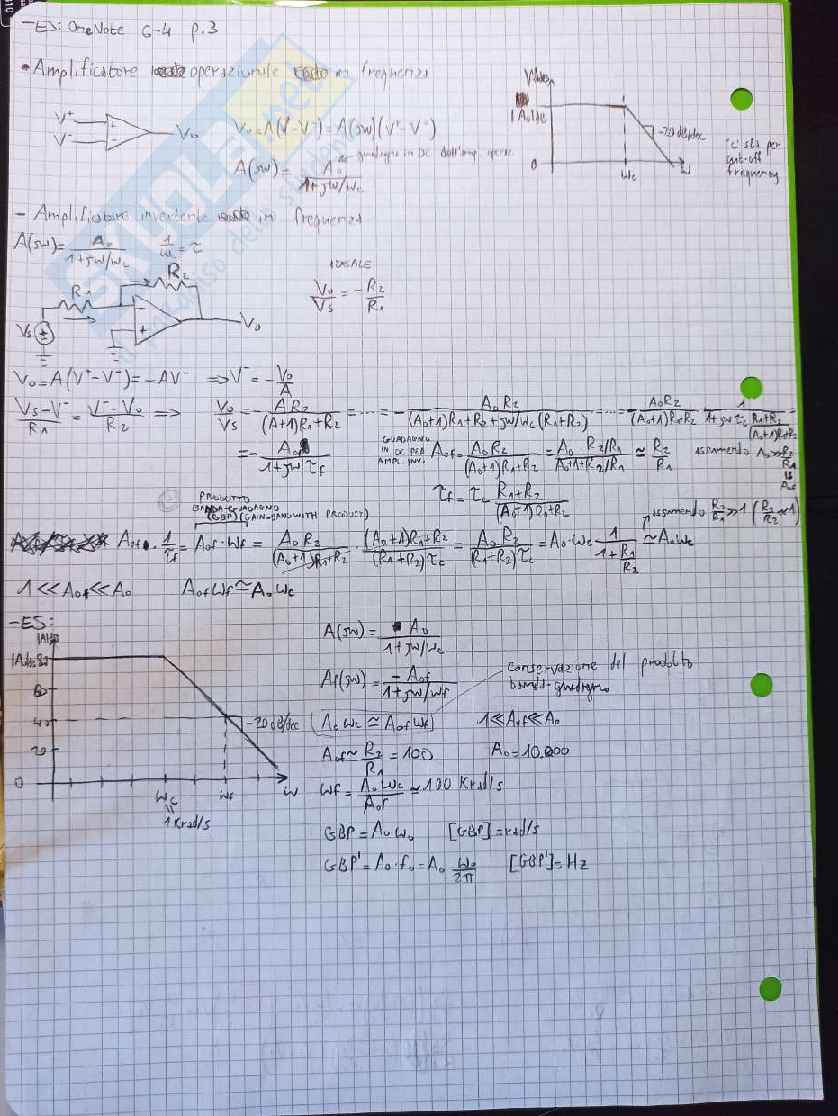 -ES: OneNote G-4 p.3
• Amplificatore operazionale in frequenza
V⁺
V⁻
V₀
V₀=A(V⁺-V⁻)=A(jω)(V⁺-V⁻)
A(jω)= A₀/(1+jω/ωc)
|A₀|dB
-20 dB/dec
0
ωc
ω
'c' sta per cut-off frequency
- Amplificatore invertente in frequenza
A(jω)= A₀/(1+jω/ωc) 1/ωc=τ
R₁
R₂
Vs
V₀
IDEALE
V₀/Vs = -R₂/R₁
V₀=A(V⁺-V⁻)=-AV⁻ ⇒V⁻=-V₀/A
(Vs-V⁻)/R₁ = (V⁻-V₀)/R₂ ⇒ V₀/Vs = -AR₂/((A+1)R₁+R₂) =....= -A₀R₂/((A₀+1)R₁+R₂+jω/ωc(R₁+R₂)) =....= -A₀R₂/((A₀+1)R₁+R₂) · 1/(1+jωτc (R₁+R₂)/((A₀+1)R₁+R₂)) =
= -A₀f/(1+jωτf)
GUADAGNO IN DC PER AMPL. INV. A₀f= A₀R₂/((A₀+1)R₁+R₂) = A₀ R₂/R₁/(A₀+1+R₂/R₁) ≃ R₂/R₁
assumendo A₀>>R₂/R₁ = A₀f
τf=τc (R₁+R₂)/((A₀+1)R₁+R₂)
PRODOTTO BANDA-GUADAGNO
(GBP) (GAIN-BANDWITH PRODUCT)
assumendo R₂/R₁>>1 (R₁/R₂<<1)
A₀f · 1/τf = A₀f·ωf = A₀R₂/((A₀+1)R₁+R₂) · ((A₀+1)R₁+R₂)/((R₁+R₂)τc) = A₀R₂/((R₁+R₂)τc) = A₀·ωc 1/(1+R₁/R₂) ≃ A₀ωc
1<<A₀f<<A₀ A₀fωf≃A₀ωc
-ES:
|A|dB
|A₀|=80
60
40
20
0
-20 dB/dec
ωc
ωf
ω
1 Krad/s
A(jω)= A₀/(1+jω/ωc)
Af(jω)= -A₀f/(1+jω/ωf)
conservazione del prodotto banda-guadagno
A₀ωc ≃ A₀fωf 1<<A₀f<<A₀
A₀f≃ R₂/R₁ =100 A₀=10.000
ωf= A₀ωc/A₀f ≃ 100 Krad/s
GBP=A₀ω₀ [GBP]=rad/s
GBP'=A₀·f₀=A₀ ω₀/2π [GBP']=Hz